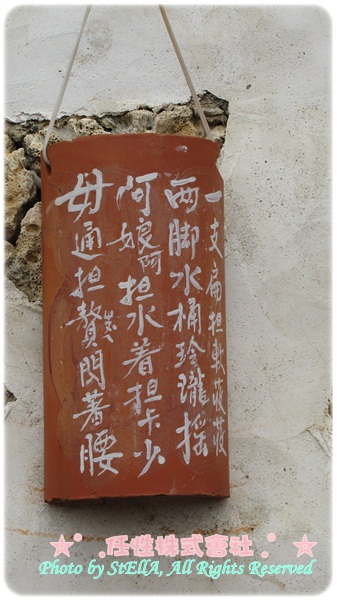 一支扁担軟荍荍
两脚水桶玲瓏摇
阿娘阿担水着担卡少
毋通担贅閃著腰
任性株式會社
Photo by StEllA, All Rights Reserved